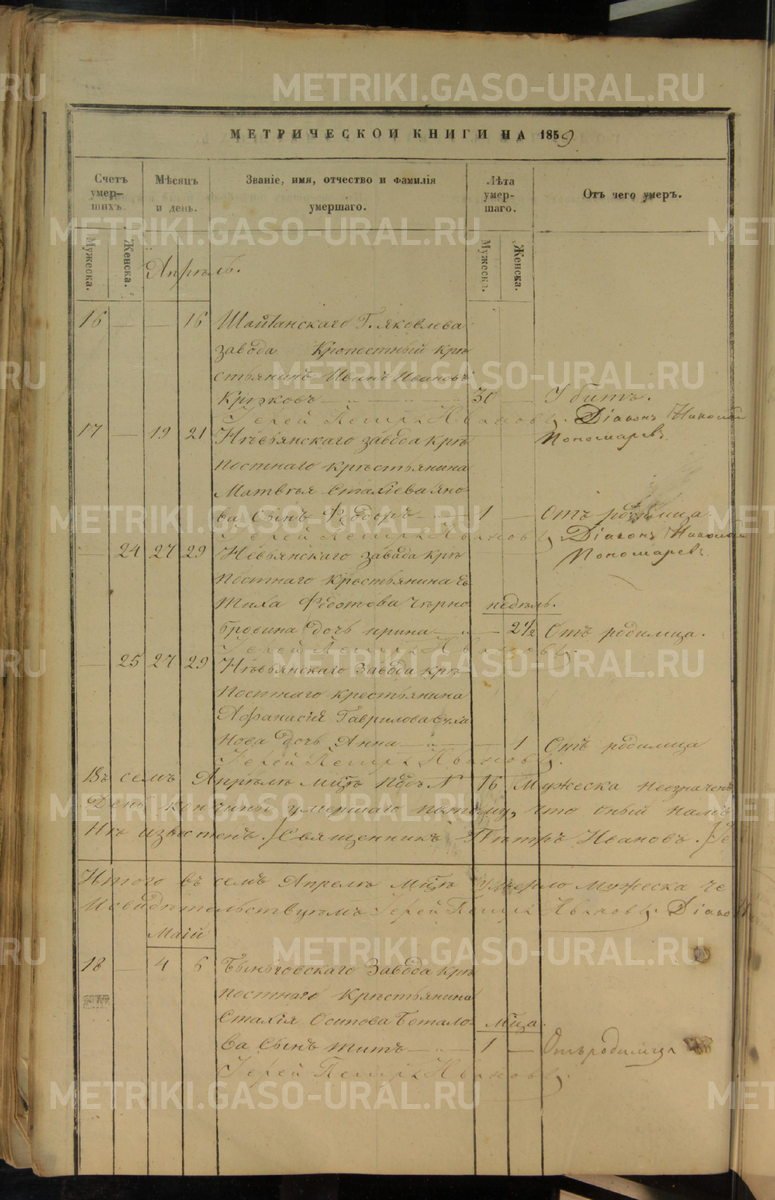 МЕТРИЧЕСКОИ КНИГИ НА 1859
Счетъ умер-шихъ. Мѣсяцъ и день. Званіе, имя, отчество и фамилія умершаго. Лѣта умер-шаго. Отъ чего умеръ.
Мужеска. Женска. Мужеск. Женска.
Апрѣль.
16 — — 16 Шайтанскаго Г. Яковлева
завода Крепостный Кре
стьянинъ Иванъ Ивановъ
30 — Убитъ.
Іерей Петръ Ивановъ. Діаконъ Николай
Пономаревъ
17 — 19 21 Невьянскаго завода Кре
постнаго Крестьянина
Матвея
ва Сынъ Ѳеодоръ 1 — Отъ родимца
Іерей Петръ Ивановъ. Діаконъ Николай
Пономаревъ
— 24 27 29 Невьянскаго завода Кре
постнаго Крестьянина
Федотова Черно недель.
бровина дочь Ирина — 2½ Отъ родимца.
Іерей Петръ Ивановъ.
— 25 27 29 Невьянскаго Завода Кре
постнаго Крестьянина
Афанасія Гаврилова
нова дочь Анна — 1 Отъ родимца
Іерей Петръ Ивановъ.
Въ семъ Апреле м-це подъ № 16 Мужеска неозначенъ
День кончины умершаго потому, что оный намъ
не известенъ. Священникъ Петръ Ивановъ.
Итого въ семъ Апреле м-це умерло Мужеска че
Свидетельствуемъ Іерей Петръ Ивановъ. Діако
Май
18 — 4 6 Быньговскаго Завода Кре
постнаго Крестьянина
Осипова м-ца.
ва Сынъ Титъ 1 — Отъ родимца
Іерей Петръ Ивановъ.
METRIKI.GASO-URAL.RU